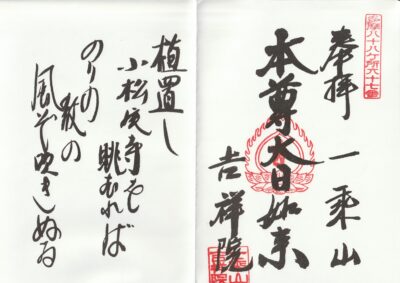 多摩八十八ケ所六十七番
奉拝 一乘山
本尊大日如来
吉祥院
植置し
小松尾寺を眺むれば
のりの教の
風ぞ吹きぬる